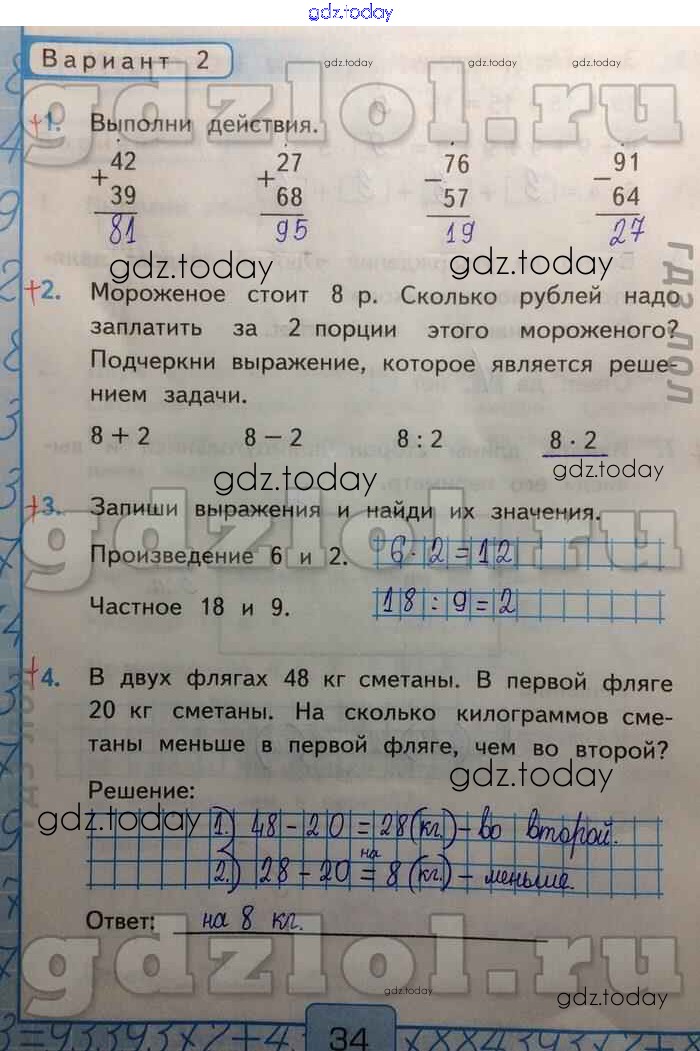 gdz.today
Вариант 2
gdz.today
gdzlol.ru
+1. Выполни действия.
+ 42 + 27 − 76 − 91
39 68 57 64
81 95 19 27
gdz.today gdz.today
+2. Мороженое стоит 8 р. Сколько рублей надо
заплатить за 2 порции этого мороженого?
Подчеркни выражение, которое является реше-
нием задачи.
гдз лол
8 + 2 8 − 2 8 : 2 8 · 2
gdz.today gdz.today
+3. Запиши выражения и найди их значения.
gdzlol.ru
Произведение 6 и 2. 6 · 2 = 12
Частное 18 и 9. 18 : 9 = 2
+4. В двух флягах 48 кг сметаны. В первой фляге
20 кг сметаны. На сколько килограммов сме-
таны меньше в первой фляге, чем во второй?
gdz.today
Решение:
gdz.today
1.) 48 − 20 = 28 (кг.) − во второй.
2.) 28 − 20 = на 8 (кг.) − меньше.
Ответ: на 8 кг.
gdzlol.ru
gdz.today gdz.today
34